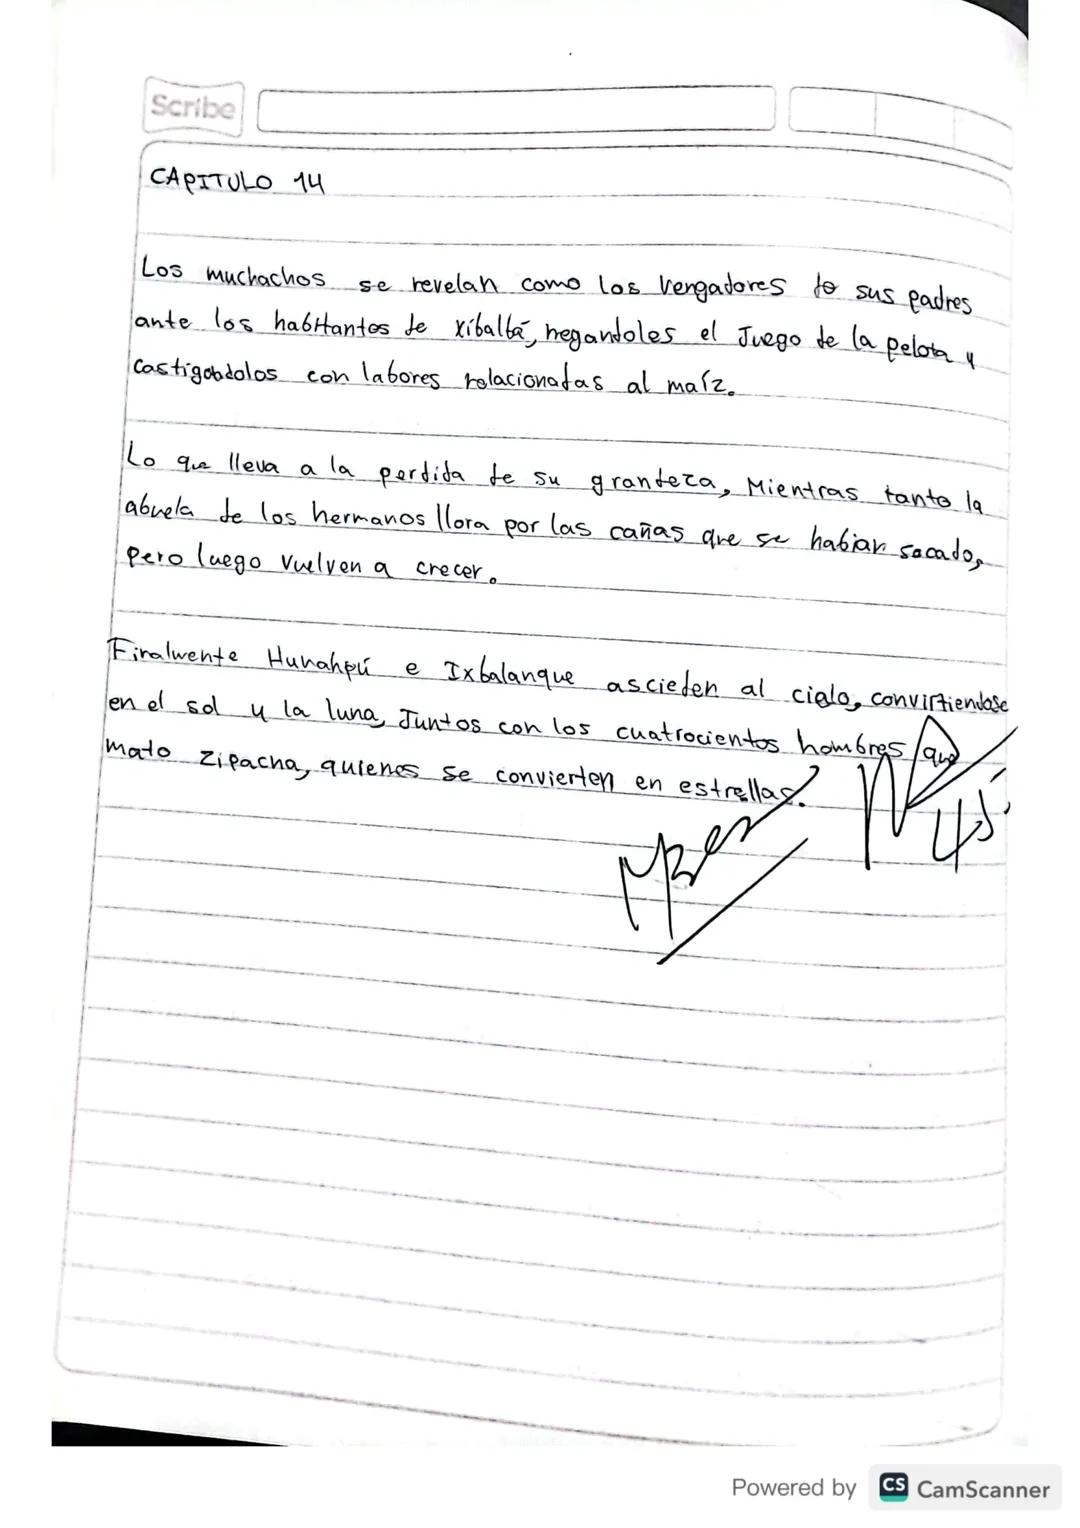 Scribe
CAPITULO 14
Los muchachos se revelan como los vengadores de sus padres
ante los habitantes de xibalbá, negandoles el Juego de la pelota y
castigandolos con labores relacionadas al maíz.
Lo que lleva a la perdida de su grandeza, Mientras tanto la
abuela de los hermanos llora por las cañas que se habian sacado,
pero luego vuelven a crecer.
Finalmente Hunahpú e Ixbalanque ascieden al cielo, convirtiendose
en el sol y la luna, Juntos con los cuatrocientos hombres que
mato Zipacna, quienes se convierten en estrellas.
Powered by CS CamScanner